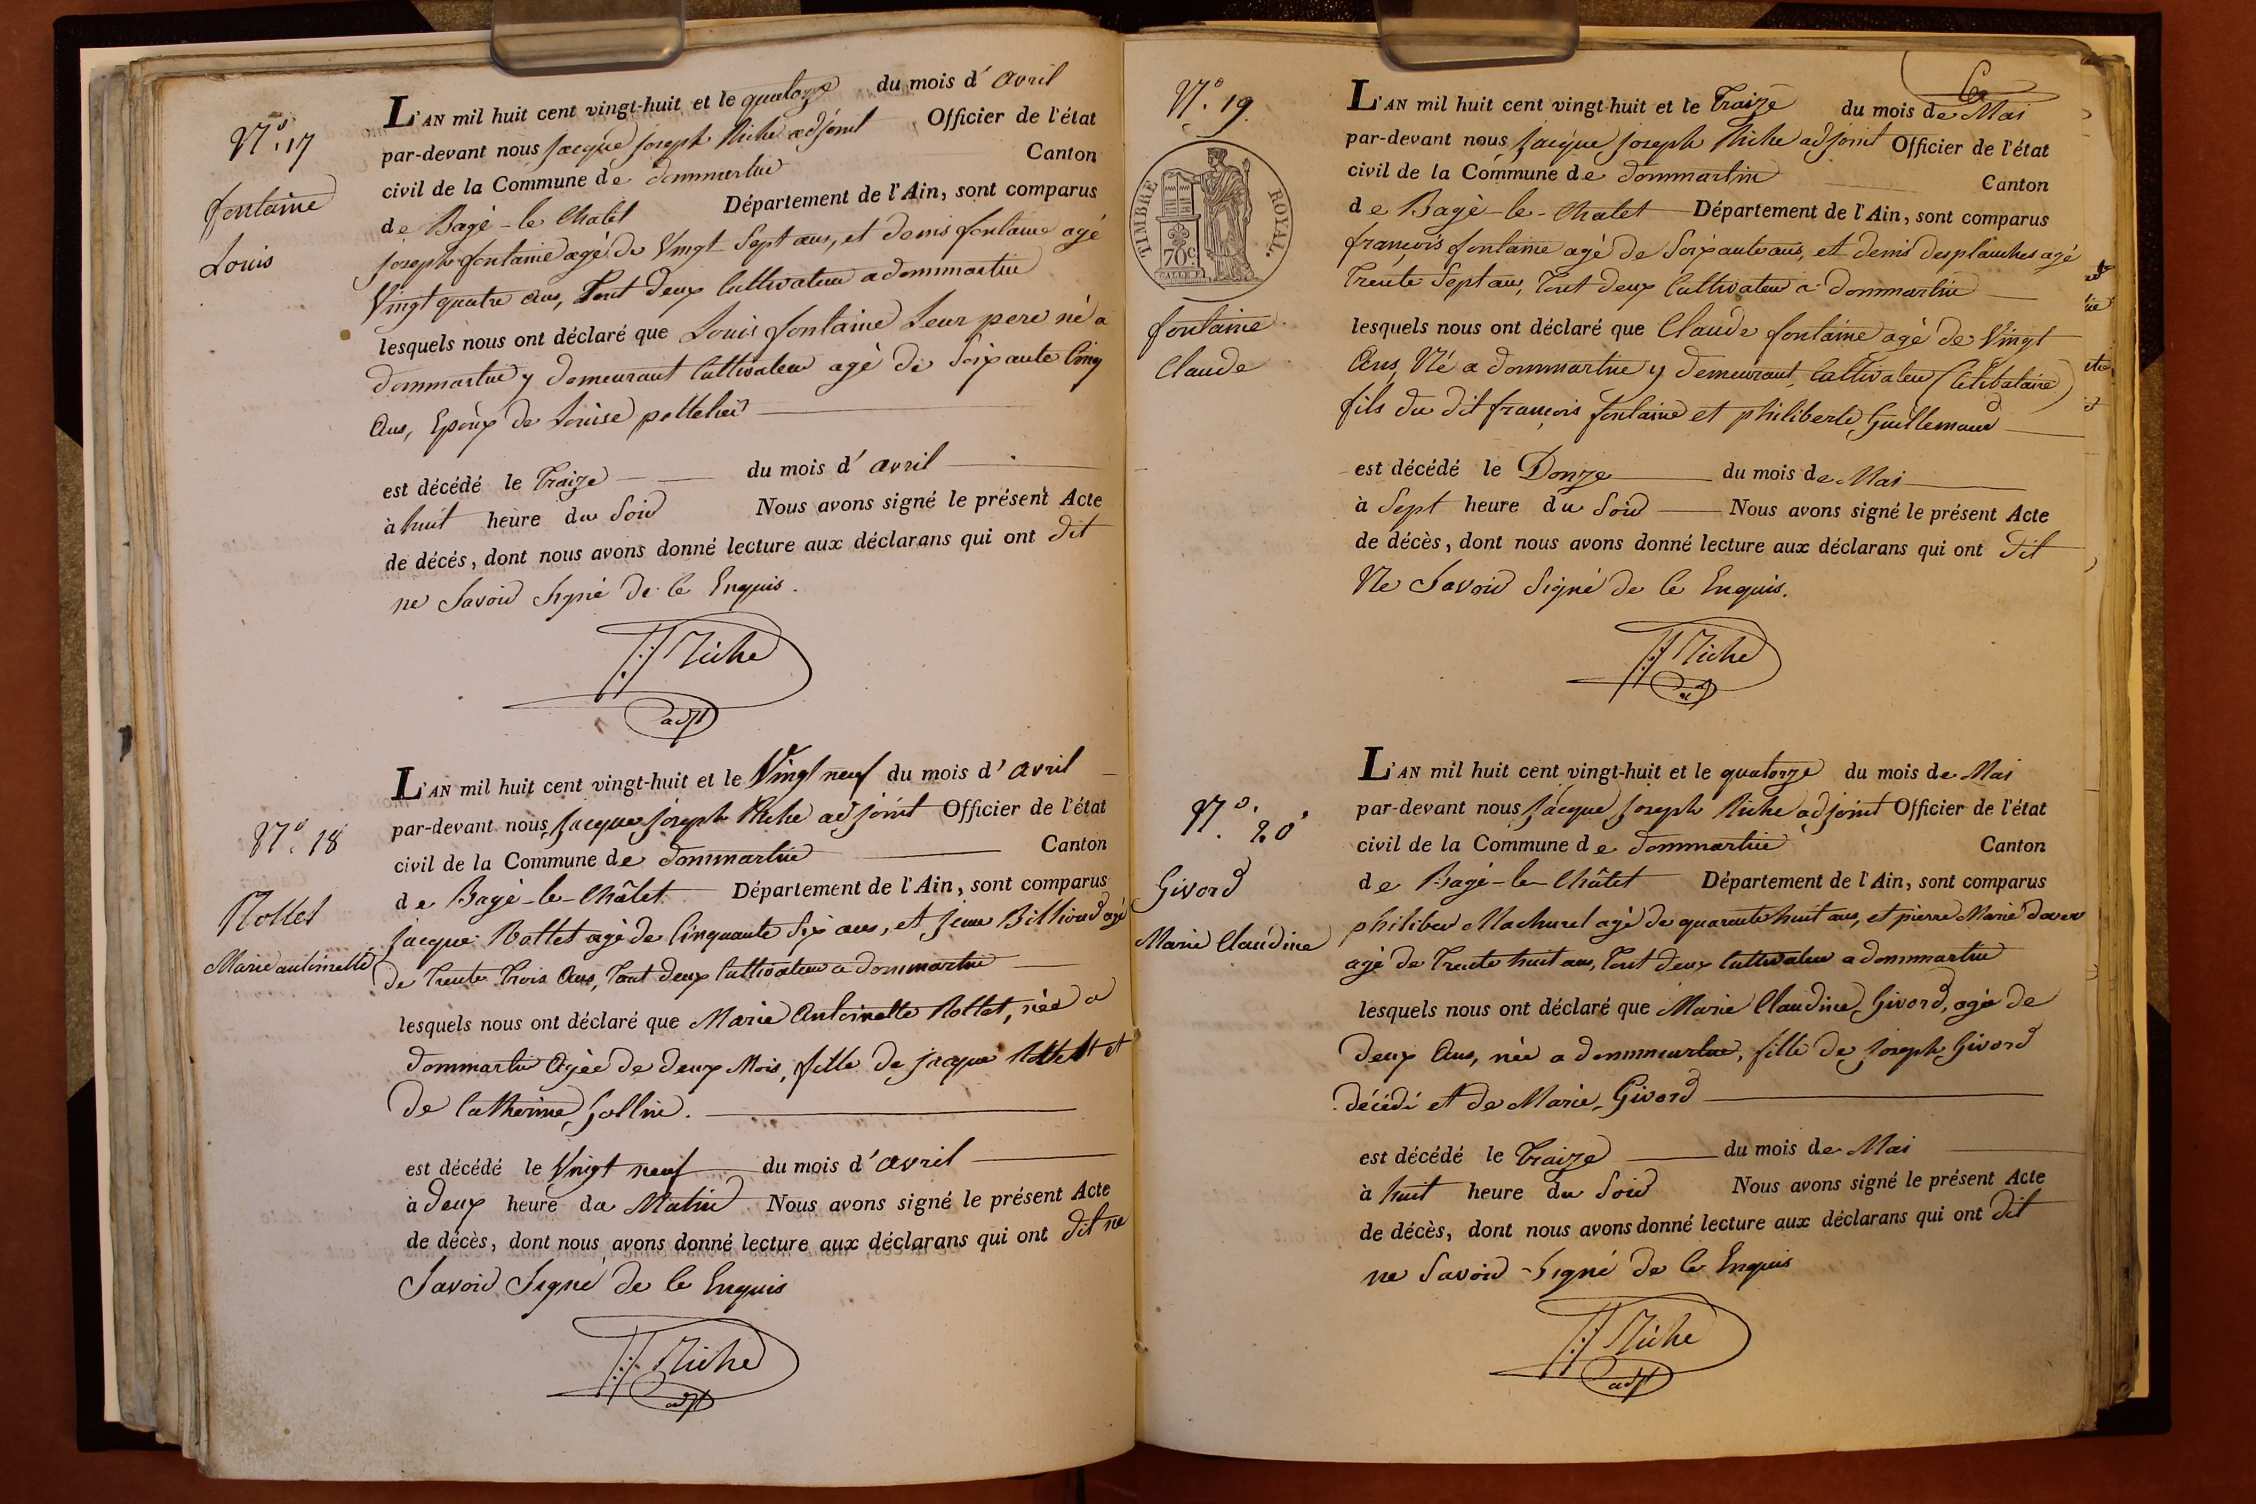 N.o 17
fontaine
Louis
L'AN mil huit cent vingt-huit et le quatorze du mois d' avril
par-devant nous jacque joseph Riche adjoint Officier de l'état
civil de la Commune de dommartin Canton
de Bagé-le-Chatel Département de l'Ain, sont comparus
joseph fontaine agé de Vingt Sept ans, et denis fontaine agé
Vingt quatre ans, Tout deux Cultivateur a dommartin
lesquels nous ont déclaré que Louis fontaine Leur pere né a
dommartin y demeurant Cultivateur agé de Soixante Cinq
ans, Epoux de Louise
est décédé le Traize du mois d' avril
à huit heure du Soir Nous avons signé le présent Acte
de décés, dont nous avons donné lecture aux déclarans qui ont dit
ne Savoir Signé de Ce Enquis.
J:J Riche
adjt
N.o 18
Rollet
Marie antoinette
L'AN mil huit cent vingt-huit et le Vingt neuf du mois d' avril
par-devant nous jacque joseph Riche adjoint Officier de l'état
civil de la Commune de dommartin Canton
de Bagé-le-Châtet Département de l'Ain, sont comparus
jacque Rollet agé de Cinquante Six ans, et Jean Billioud agé
de Trente Trois ans, Tout deux Cultivateur a dommartin
lesquels nous ont déclaré que Marie Antoinette Rollet, née a
dommartin Agée de deux Mois, fille de jacque Rollet et
de Catherine Gollin.
est décédé le Vingt neuf du mois d' avril
à deux heure da Matin Nous avons signé le présent Acte
de décès, dont nous avons donné lecture aux déclarans qui ont dit ne
Savoir Signé de Ce Enquis
J:J Riche
adjt
6
N.o 19.
TIMBRE ROYAL.
70c
fontaine
Claude
L'AN mil huit cent vingt-huit et le Traize du mois de Mai
par-devant nous jacque joseph Riche adjoint Officier de l'état
civil de la Commune de dommartin Canton
de Bagé-le-Chatet Département de l'Ain, sont comparus
françois fontaine agé de Soixante ans, et denis desplanches agé
Trente Sept ans, Tout deux Cultivateur a dommartin
lesquels nous ont déclaré que Claude fontaine agé de Vingt
Ans, Né a dommartin y demeurant, Cultivateur (Célibataire)
fils du dit françois fontaine et philiberte Guillemaud
est décédé le Douze du mois de Mai
à Sept heure du Soir Nous avons signé le présent Acte
de décès, dont nous avons donné lecture aux déclarans qui ont dit
Ne Savoir Signé de Ce Enquis.
J:J Riche
N.o 20
Givord
Marie Claudine
L'AN mil huit cent vingt-huit et le quatorze du mois de Mai
par-devant nous jacque joseph Riche adjoint Officier de l'état
civil de la Commune de dommartin Canton
de Bagé-le-Châtet Département de l'Ain, sont comparus
philiber Machurel agé de quarante huit ans, et pierre Marie
agé de Trente huit ans, Tout deux Cultivateur a dommartin
lesquels nous ont déclaré que Marie Claudine Givord, agée de
deux Ans, née a dommartin, fille de joseph Givord
décédé et de Marie Givord
est décédé le Traize du mois de Mai
à huit heure du Soir Nous avons signé le présent Acte
de décès, dont nous avons donné lecture aux déclarans qui ont dit
ne Savoir Signé de Ce Enquis
J:J Riche
adjt